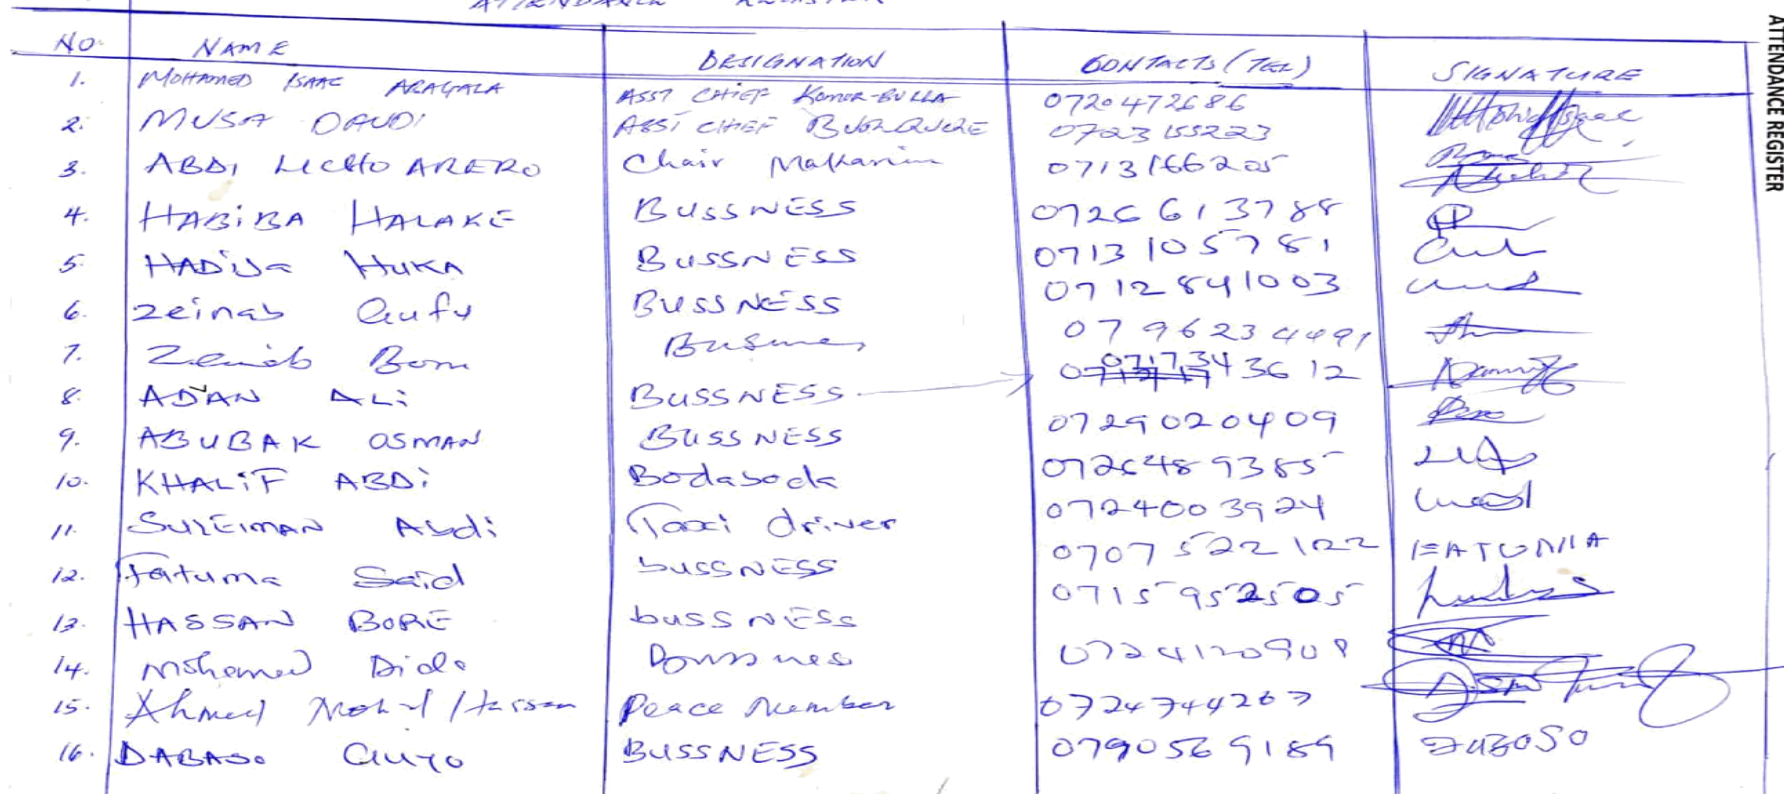 ATTENDANCE REGISTER
ATTENDANCE REGISTER
NO. NAME DESIGNATION CONTACTS (TEL) SIGNATURE
1. MOHAMED ISAAC ARAGALA ASST CHIEF KOMOR-BULLA 0720472686
2. MUSA DAUDI ASSt CHIEF 0723155223
3. ABDI ARERO Chair 0713166205
4. HABiBA HALAKE BUSSNESS 0726613788
5. HADIJa HUKA BUSSNESS 0713105781
6. Zeinab Gufu BUSSNESS 0712841003
7. Zeinab 0796234491
8. ADAN ALi BUSSNESS 0717343612
9. ABUBAK OSMAN BUSSNESS 0729020409
10. KHALiF ABDi Bodaboda 0726489385
11. SULEIMAN Abdi Taxi driver 0724003924
12. Fatuma Said bussNESS 0707522122 FATUMA
13. HASSAN BORE bussNESS 0715952505
14. Mohamed Dido 0724120908
15. Ahmed Hassan Peace Member 0724744267
16. DABASO GUYO BUSSNESS 0790569189